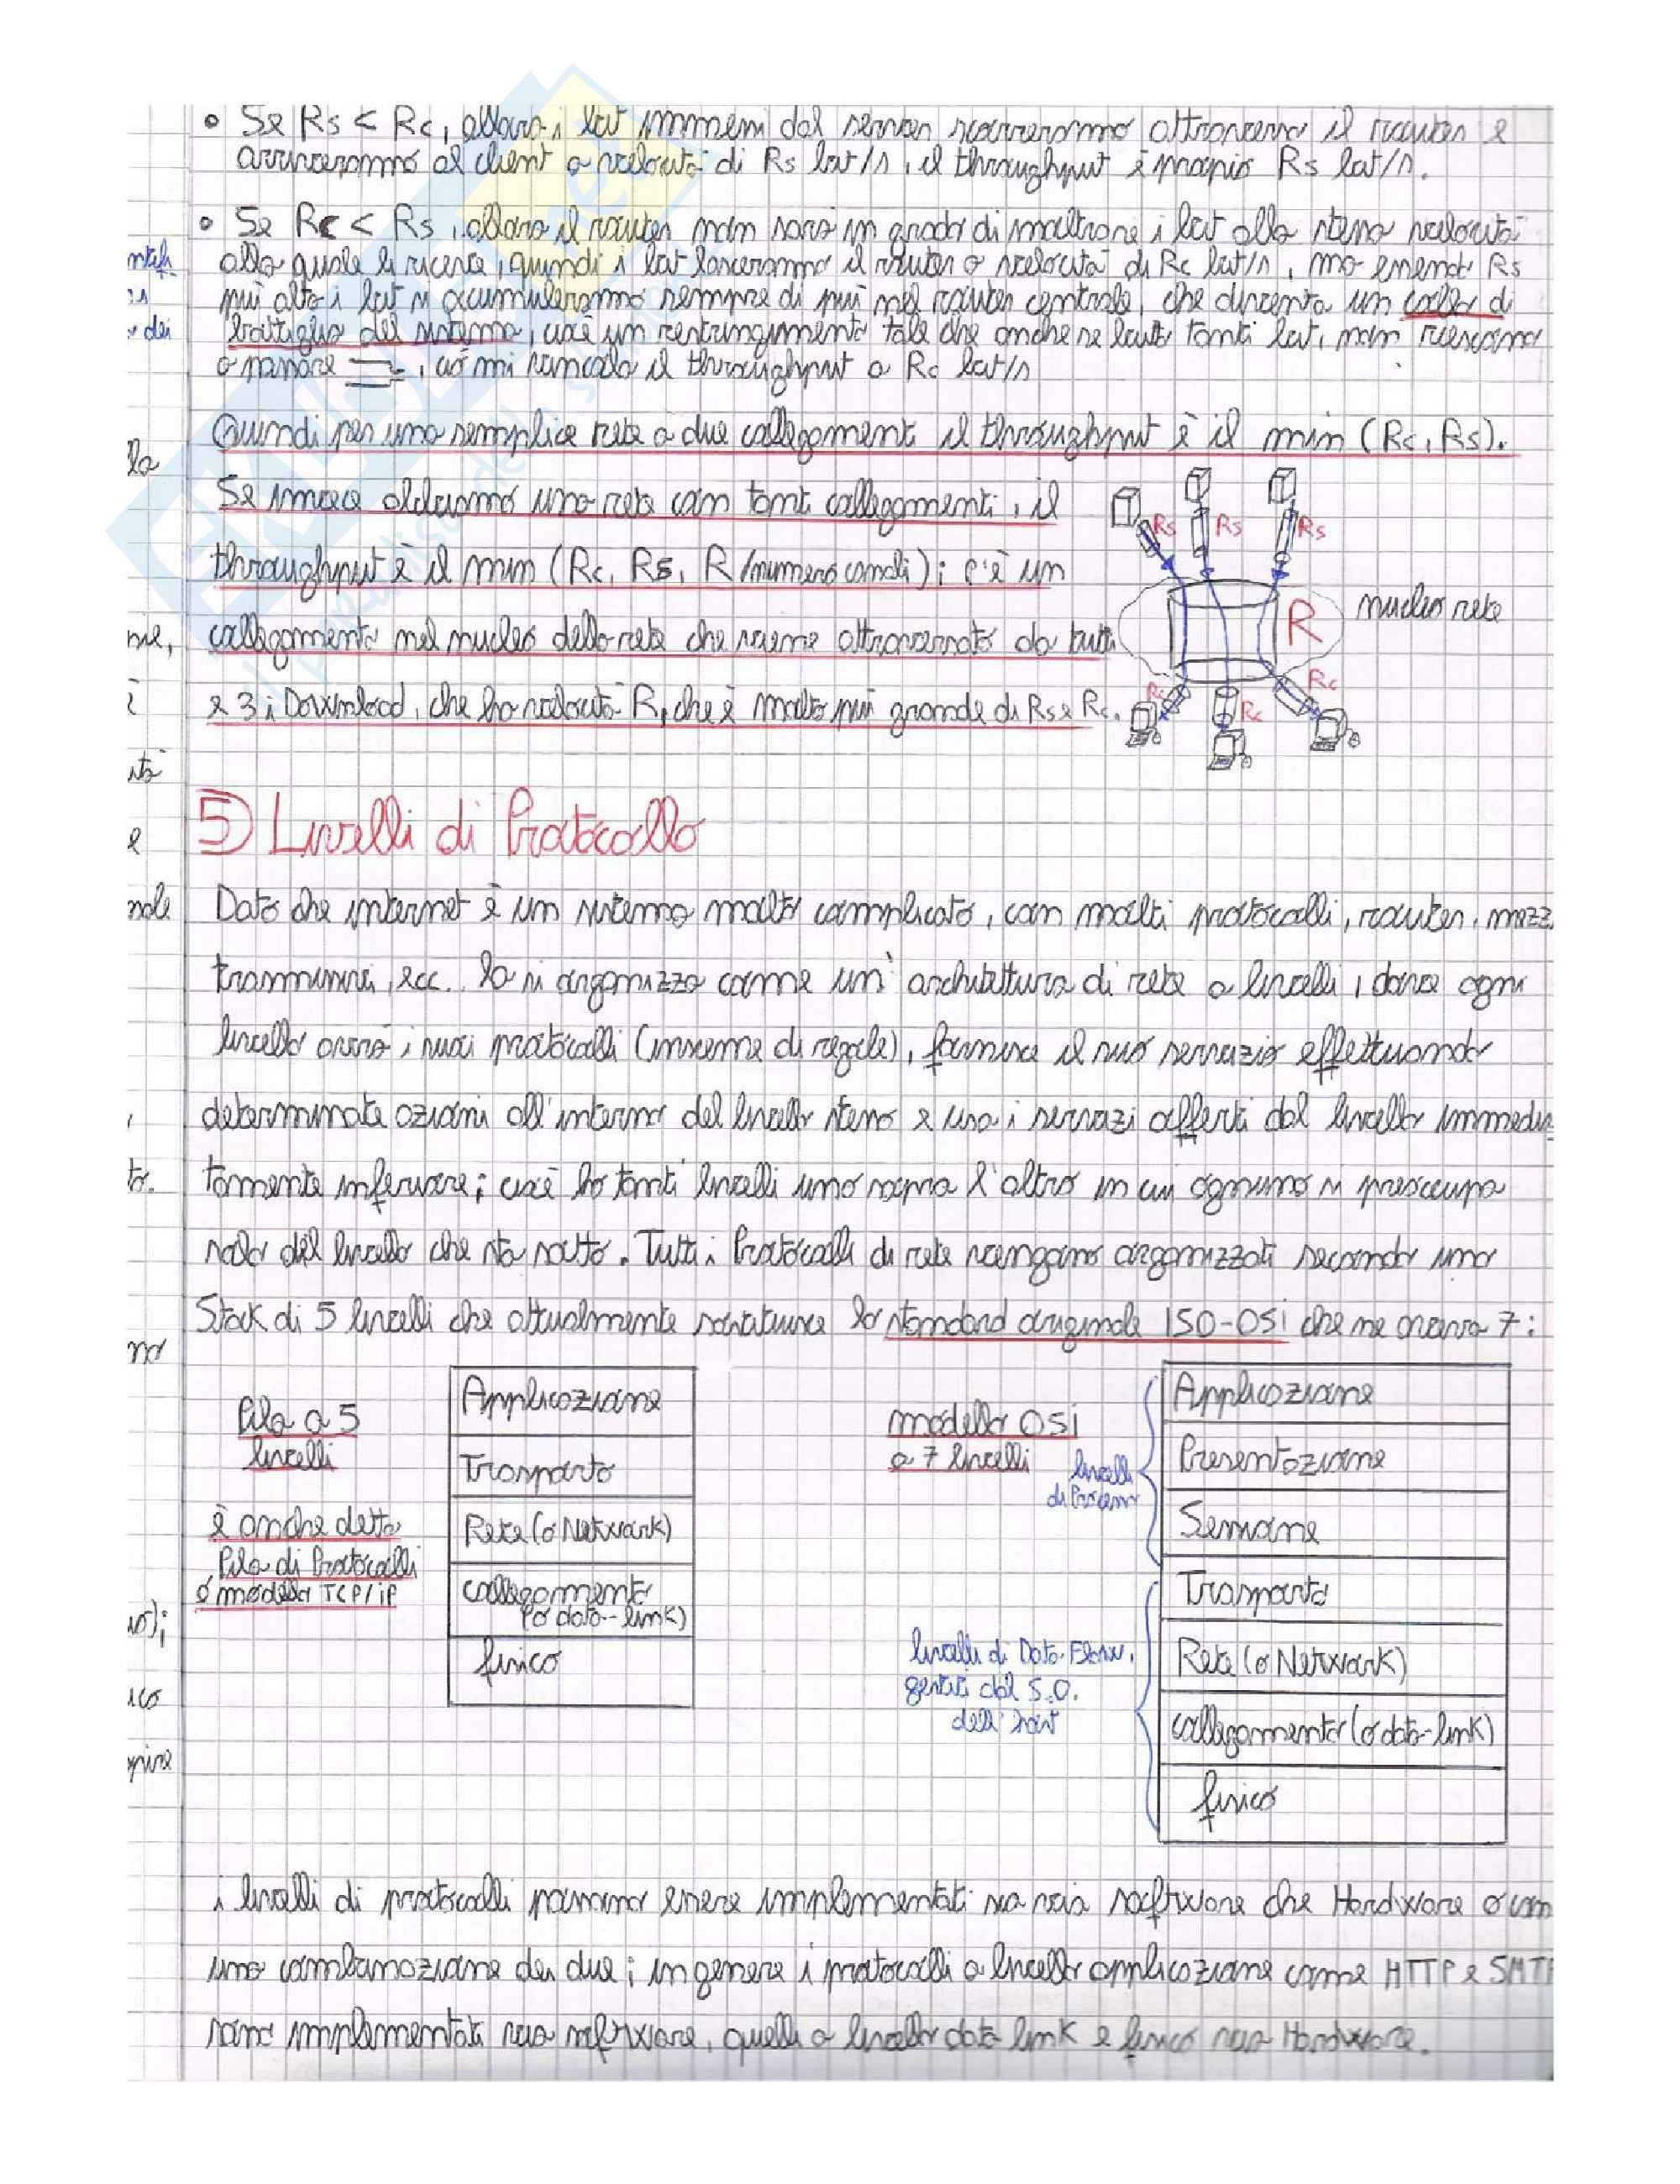 • Se Rs < Rc, allora i bit immessi dal server scorreranno attraverso il router e
arriveranno al client a velocità di Rs bit/s, il throughput è proprio Rs bit/s.
• Se Rc < Rs, allora il router non sarà in grado di inoltrare i bit alla stessa velocità
alla quale li riceve, quindi i bit lasceranno il router a velocità di Rc bit/s, ma essendo Rs
più alto i bit si accumuleranno sempre di più nel router centrale, che diventa un collo di
bottiglia del sistema, cioè un restringimento tale che anche se butto tanti bit, non riescono
a passare , ciò mi vincola il throughput a Rc bit/s
Quindi per una semplice rete a due collegamenti il throughput è il min (Rc, Rs).
Se invece abbiamo una rete con tanti collegamenti, il
throughput è il min (Rc, Rs, R/numero canali); c'è un
collegamento nel nucleo della rete che viene attraversato da tutti
e 3 i Download, che ha velocità R, che è molto più grande di Rs e Rc.
Rs
Rs
Rs
R
nucleo rete
Rc
Rc
Rc
5) Livelli di Protocollo
Dato che internet è un sistema molto complicato, con molti protocolli, router, mezz
trasmissivi, ecc.. lo si organizza come un'architettura di rete a livelli, dove ogni
livello avrà i suoi protocolli (insieme di regole), fornisce il suo servizio effettuando
determinate azioni all'interno del livello stesso e usa i servizi offerti dal livello immedia
tamente inferiore; cioè ho tanti livelli uno sopra l'altro in cui ognuno si preoccupa
solo del livello che sta sotto. Tutti i Protocolli di rete vengono organizzati secondo uno
Stack di 5 livelli che attualmente sostituisce lo standard originale ISO-OSI che ne aveva 7:
Pila a 5
livelli
è anche detta
Pila di Protocolli
o modello TCP/IP
Applicazione
Trasporto
Rete (o Network)
collegamento
(o data-link)
fisico
modello OSI
a 7 livelli
livelli
di Processo
livelli di Data Flow,
gestiti dal S.O.
dell'host
Applicazione
Presentazione
Sessione
Trasporto
Rete (o Network)
collegamento (o data-link)
fisico
i livelli di protocolli possono essere implementati sia via software che Hardware o con
una combinazione dei due; in genere i protocolli a livello applicazione come HTTP e SMTP
sono implementati via software, quelli a livello data link e fisico via Hardware.